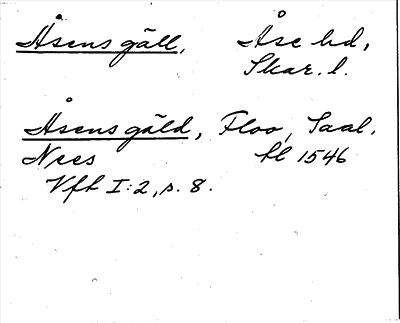 Åsens gäll. Åse hd,
Skar. l.
Åsens gäld, Floo, Saal,
Nees hl 1546
Vfh I:2, s. 8.